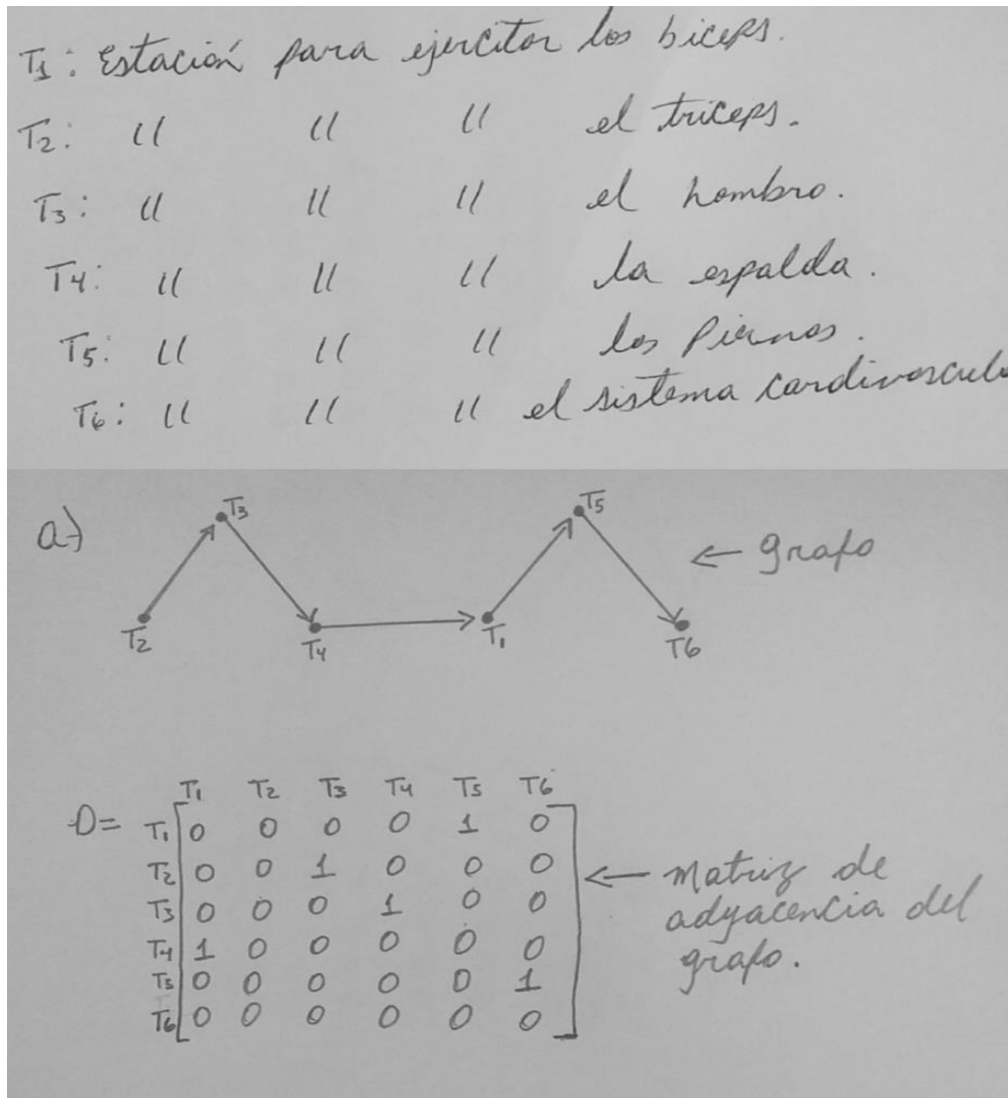 T1: Estación para ejercitar los biceps.
T2: 〃 〃 〃 el triceps.
T3: 〃 〃 〃 el hombro.
T4: 〃 〃 〃 la espalda.
T5: 〃 〃 〃 las Piernas.
T6: 〃 〃 〃 el sistema cardivascula
a)
T3 T5
← grafo
T2 T4 T1 T6
T1 T2 T3 T4 T5 T6
D= T1 0 0 0 0 1 0
T2 0 0 1 0 0 0
T3 0 0 0 1 0 0
T4 1 0 0 0 0 0
T5 0 0 0 0 0 1
T6 0 0 0 0 0 0
← matriz de
adyacencia del
grafo.